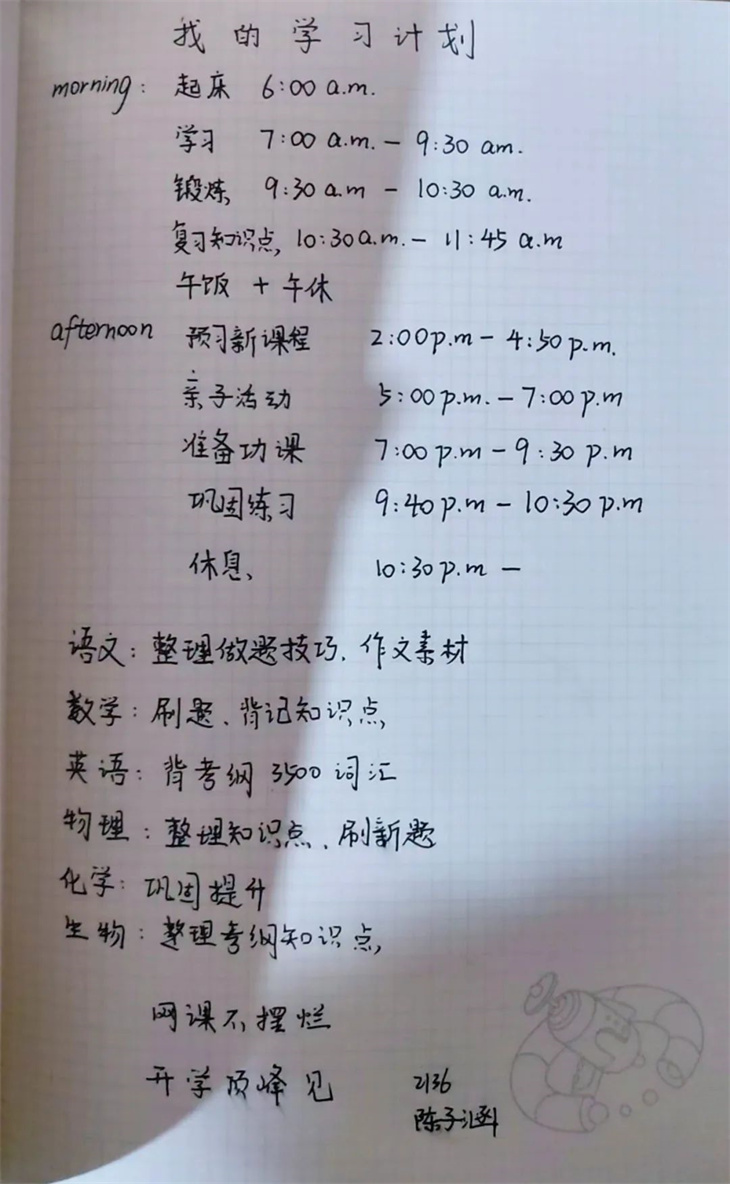 我的学习计划
morning: 起床 6:00 a.m.
学习 7:00 a.m. - 9:30 am.
锻炼 9:30 a.m - 10:30 a.m.
复习知识点 10:30 a.m. - 11:45 a.m
午饭 + 午休
afternoon 预习新课程 2:00 p.m - 4:50 p.m.
亲子活动 5:00 p.m. - 7:00 p.m
准备功课 7:00 p.m - 9:30 p.m
巩固练习 9:40 p.m - 10:30 p.m
休息 10:30 p.m -
语文: 整理做题技巧、作文素材
数学: 刷题、背记知识点
英语: 背考纲 3500 词汇
物理: 整理知识点、刷新题
化学: 巩固提升
生物: 整理考纲知识点
网课不摆烂
开学顶峰见 2136
陈子涵